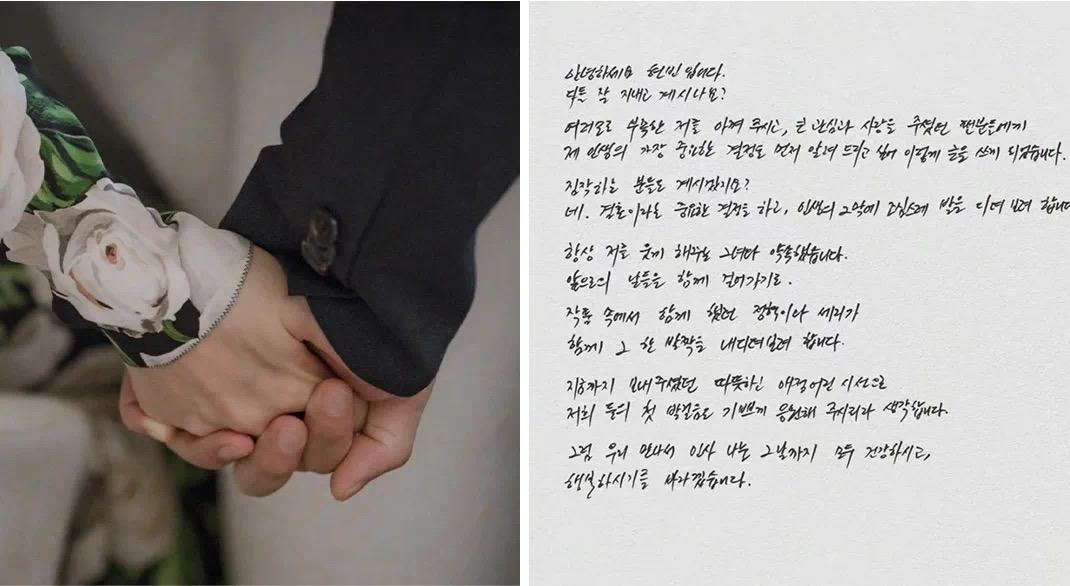 안녕하세요 현빈입니다.
다들 잘 지내고 계시나요?
여러모로 부족한 저를 아껴 주시고, 큰 관심과 사랑을 주셨던 팬분들에게
제 인생의 가장 중요한 결정을 먼저 알려 드리고 싶어 이렇게 글을 쓰게 되었습니다.
짐작하는 분들도 계시겠지요?
네. 결혼이라는 중요한 결정을 하고, 인생의 2막에 조심스레 발을 디뎌 보려 합니다
항상 저를 웃게 해주는 그녀와 약속했습니다.
앞으로의 날들을 함께 걸어가기로.
작품 속에서 함께 했던 정혁이와 세리가
함께 그 한 발짝을 내디뎌보려 합니다.
지금까지 보내주셨던 따뜻하신 애정어린 시선으로
저희 둘의 첫 발걸음도 기쁘게 응원해 주시리라 생각합니다.
그럼 우리 만나서 인사 나눌 그날까지 모두 건강하시고,
행복하시기를 바라겠습니다.